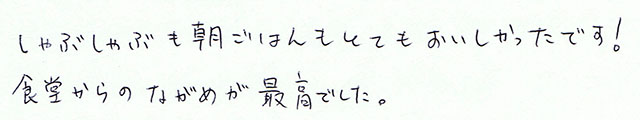 しゃぶしゃぶも朝ごはんもとてもおいしかったです!
食堂からのながめが最高でした。